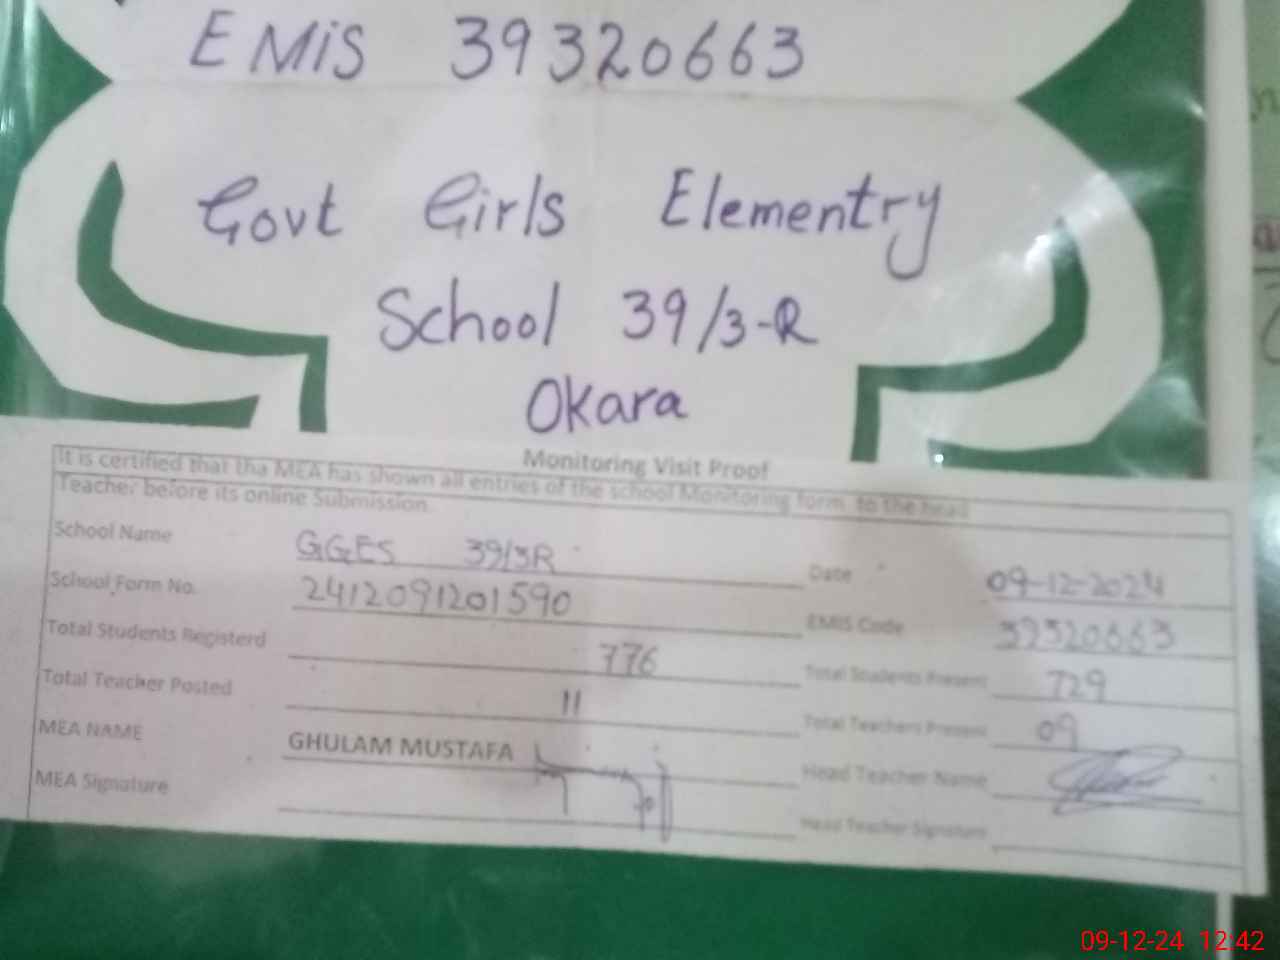 EMiS 39320663
Govt Girls Elementry
School 39/3-R
Okara
Monitoring Visit Proof
It is certified that tha MEA has shown all entries of the school Monitoring form to the head
Teacher before its online Submission.
School Name GGES 39/3R Date 09-12-2024
School Form No. 2412091201590 EMIS Code 39320663
Total Students Registerd 776 Total Students Present 729
Total Teacher Posted 11 Total Teachers Present 09
MEA NAME GHULAM MUSTAFA Head Teacher Name
MEA Signature Head Teacher Signature
09-12-24 12:42